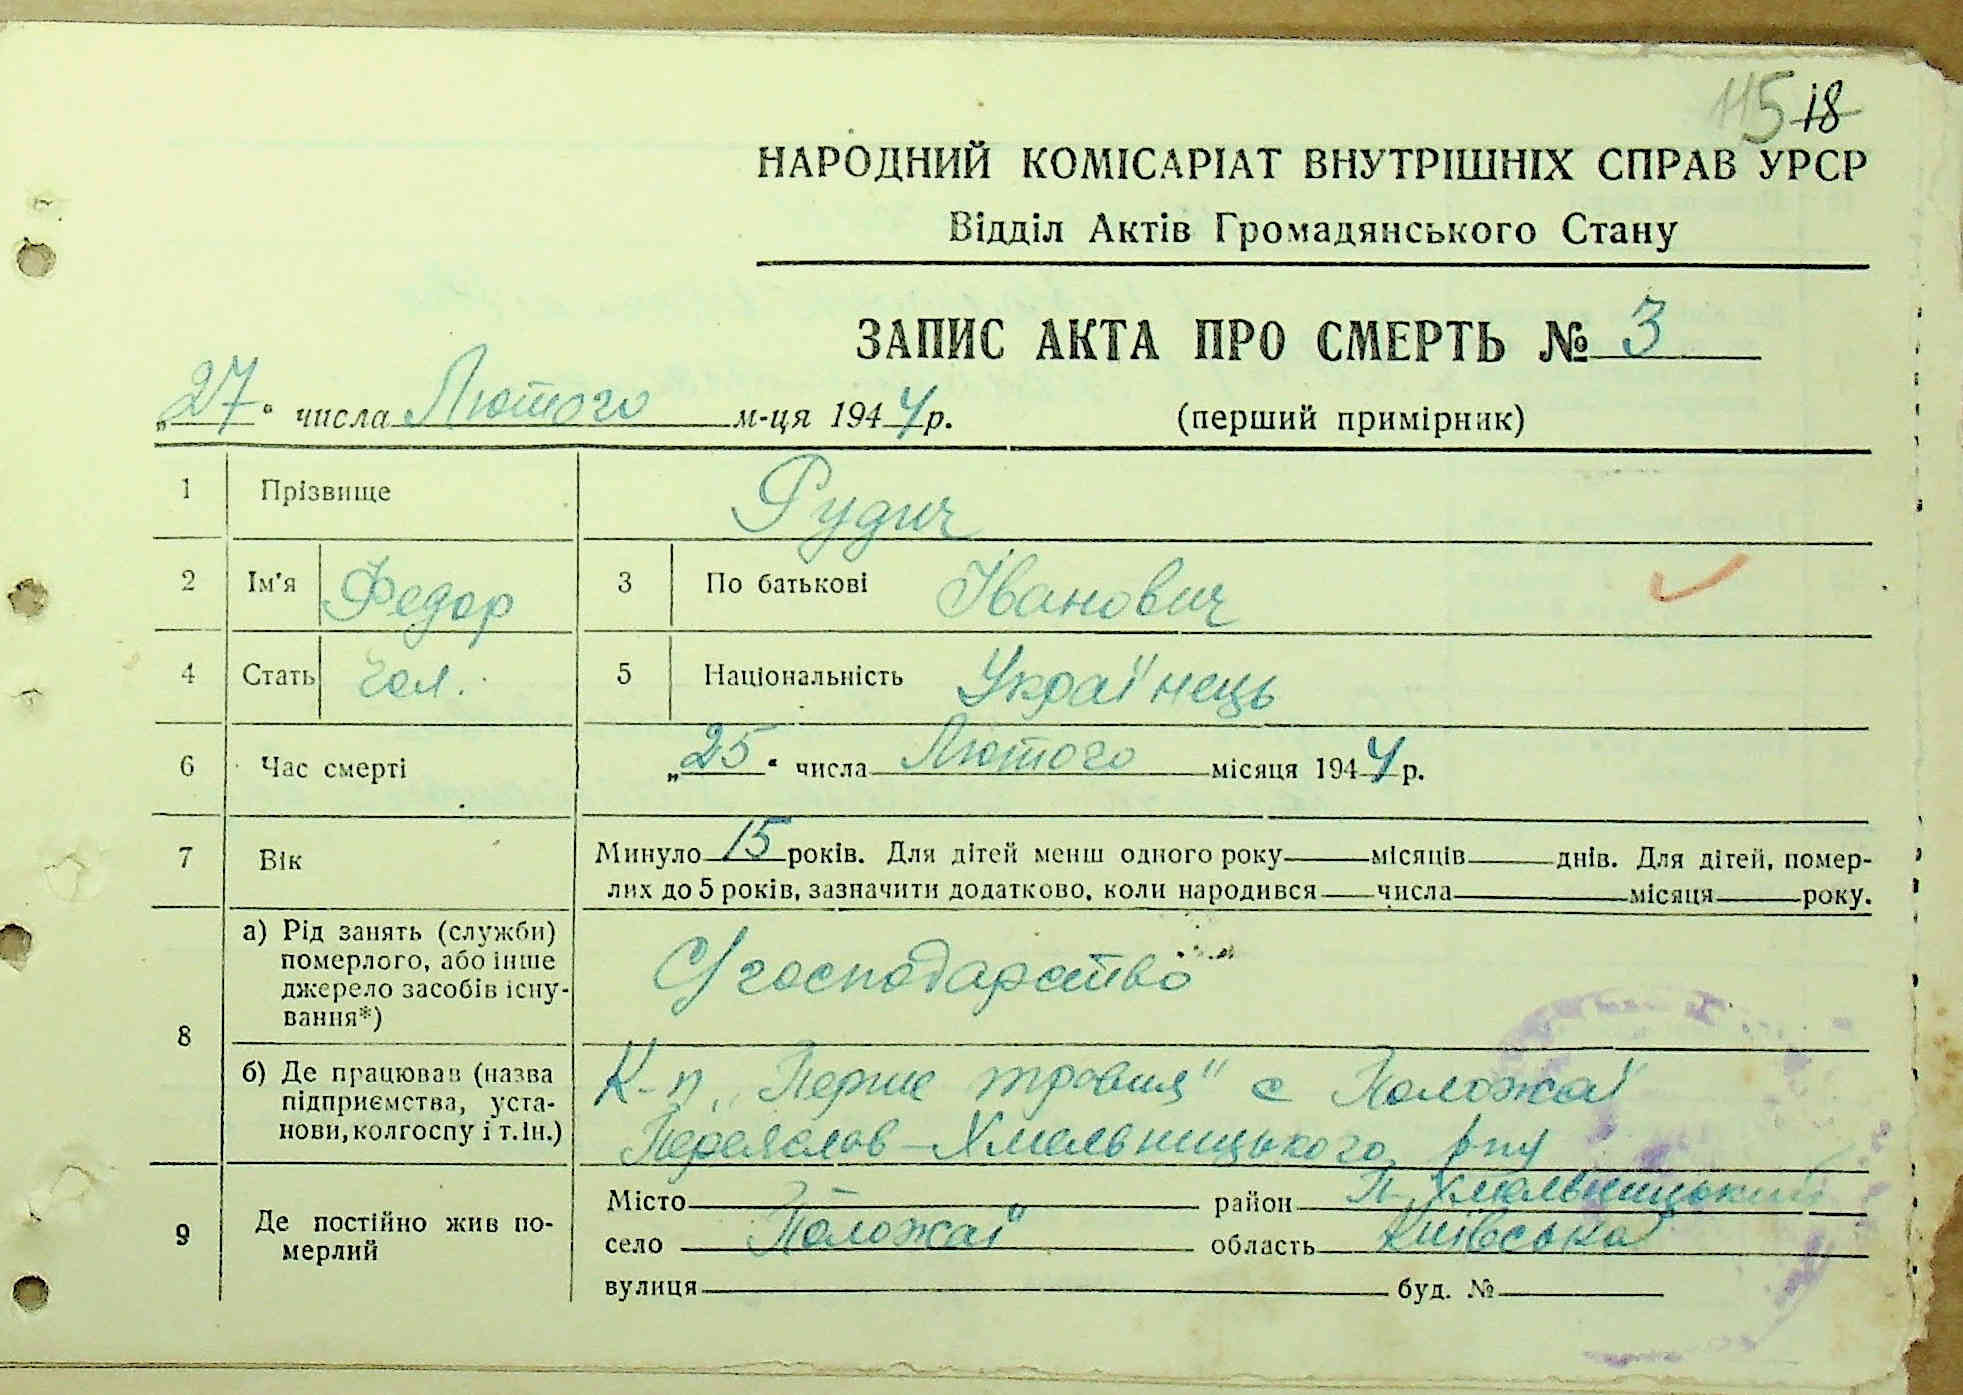 115 18
НАРОДНИЙ КОМІСАРІАТ ВНУТРІШНІХ СПРАВ УРСР
Відділ Актів Громадянського Стану
ЗАПИС АКТА ПРО СМЕРТЬ № 3
„27" числа Лютого м-ця 1944 р. (перший примірник)
1 Прізвище Рудич
2 Ім'я Федор 3 По батькові Іванович
4 Стать Чол. 5 Національність Українець
6 Час смерті „25" числа Лютого місяця 1944 р.
7 Вік Минуло 15 років. Для дітей менш одного року місяців днів. Для дітей, помер-
лих до 5 років, зазначити додатково, коли народився числа місяця року.
8 а) Рід занять (служби)
померлого, або інше
джерело засобів існу-
вання*)
С/господарство
б) Де працював (назва
підприємства, уста-
нови, колгоспу і т. ін.)
К-п „Перше травня" с Положаї
Переяслав-Хмельницького р-ну
9 Де постійно жив по-
мерлий
Місто район П-Хмельницький
село Положаї область Київська
вулиця буд. №